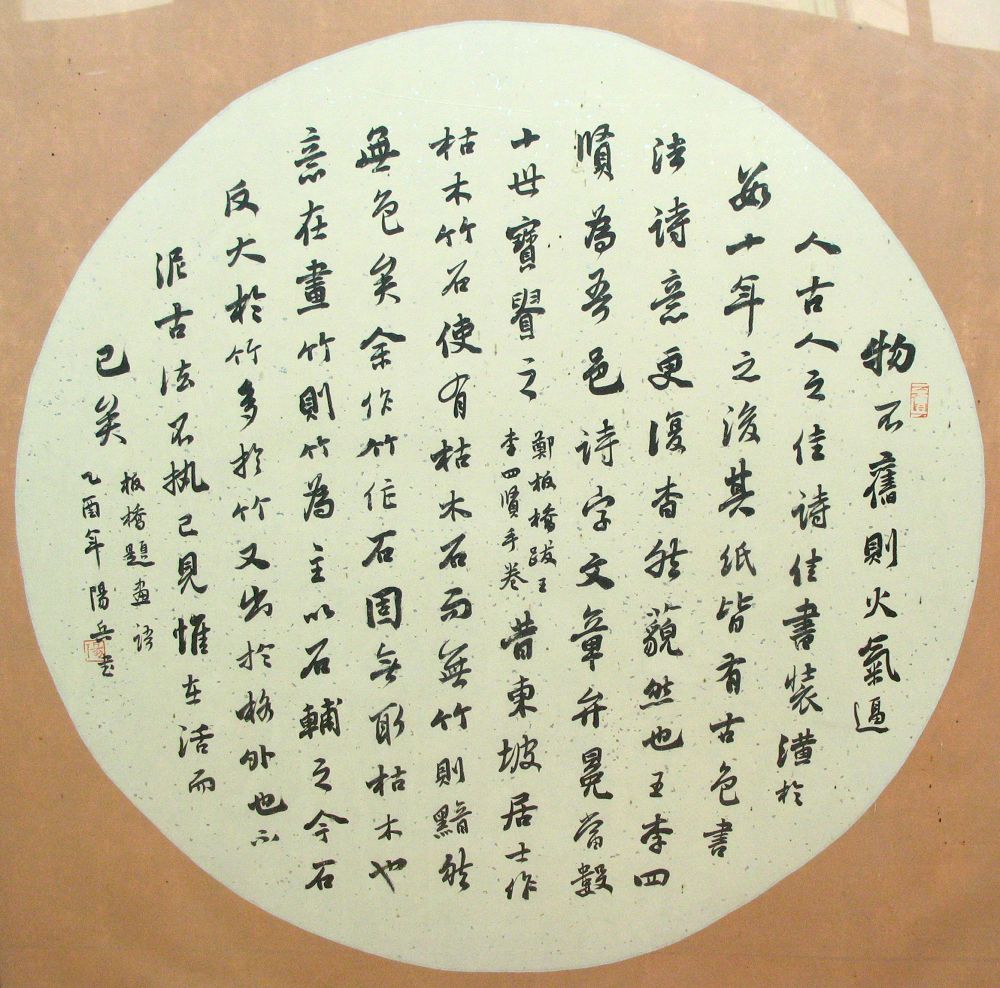 物不舊則火氣逼
人古人之佳詩佳書裝潢於
數十年之後其紙皆有古色書
法詩意更復杳然藐然也王李四
賢為吾邑詩字文章弁冕當數
十世寶之
鄭板橋跋王
李四賢手卷
昔東坡居士作
枯木竹石使有枯木石而無竹則黯然
無色矣余作竹作石固無取枯木也
意在畫竹則竹為主以石輔之今石
反大於竹多於竹又出於格外也不
泥古法不执己見惟在活而
已矣
板橋題畫語
乙酉年陽兵書